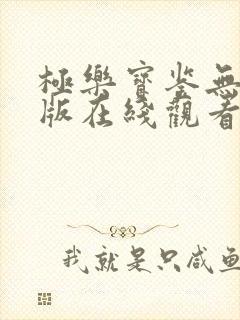 極樂寶鉴無
版在綫觀看
我就是只咸鱼